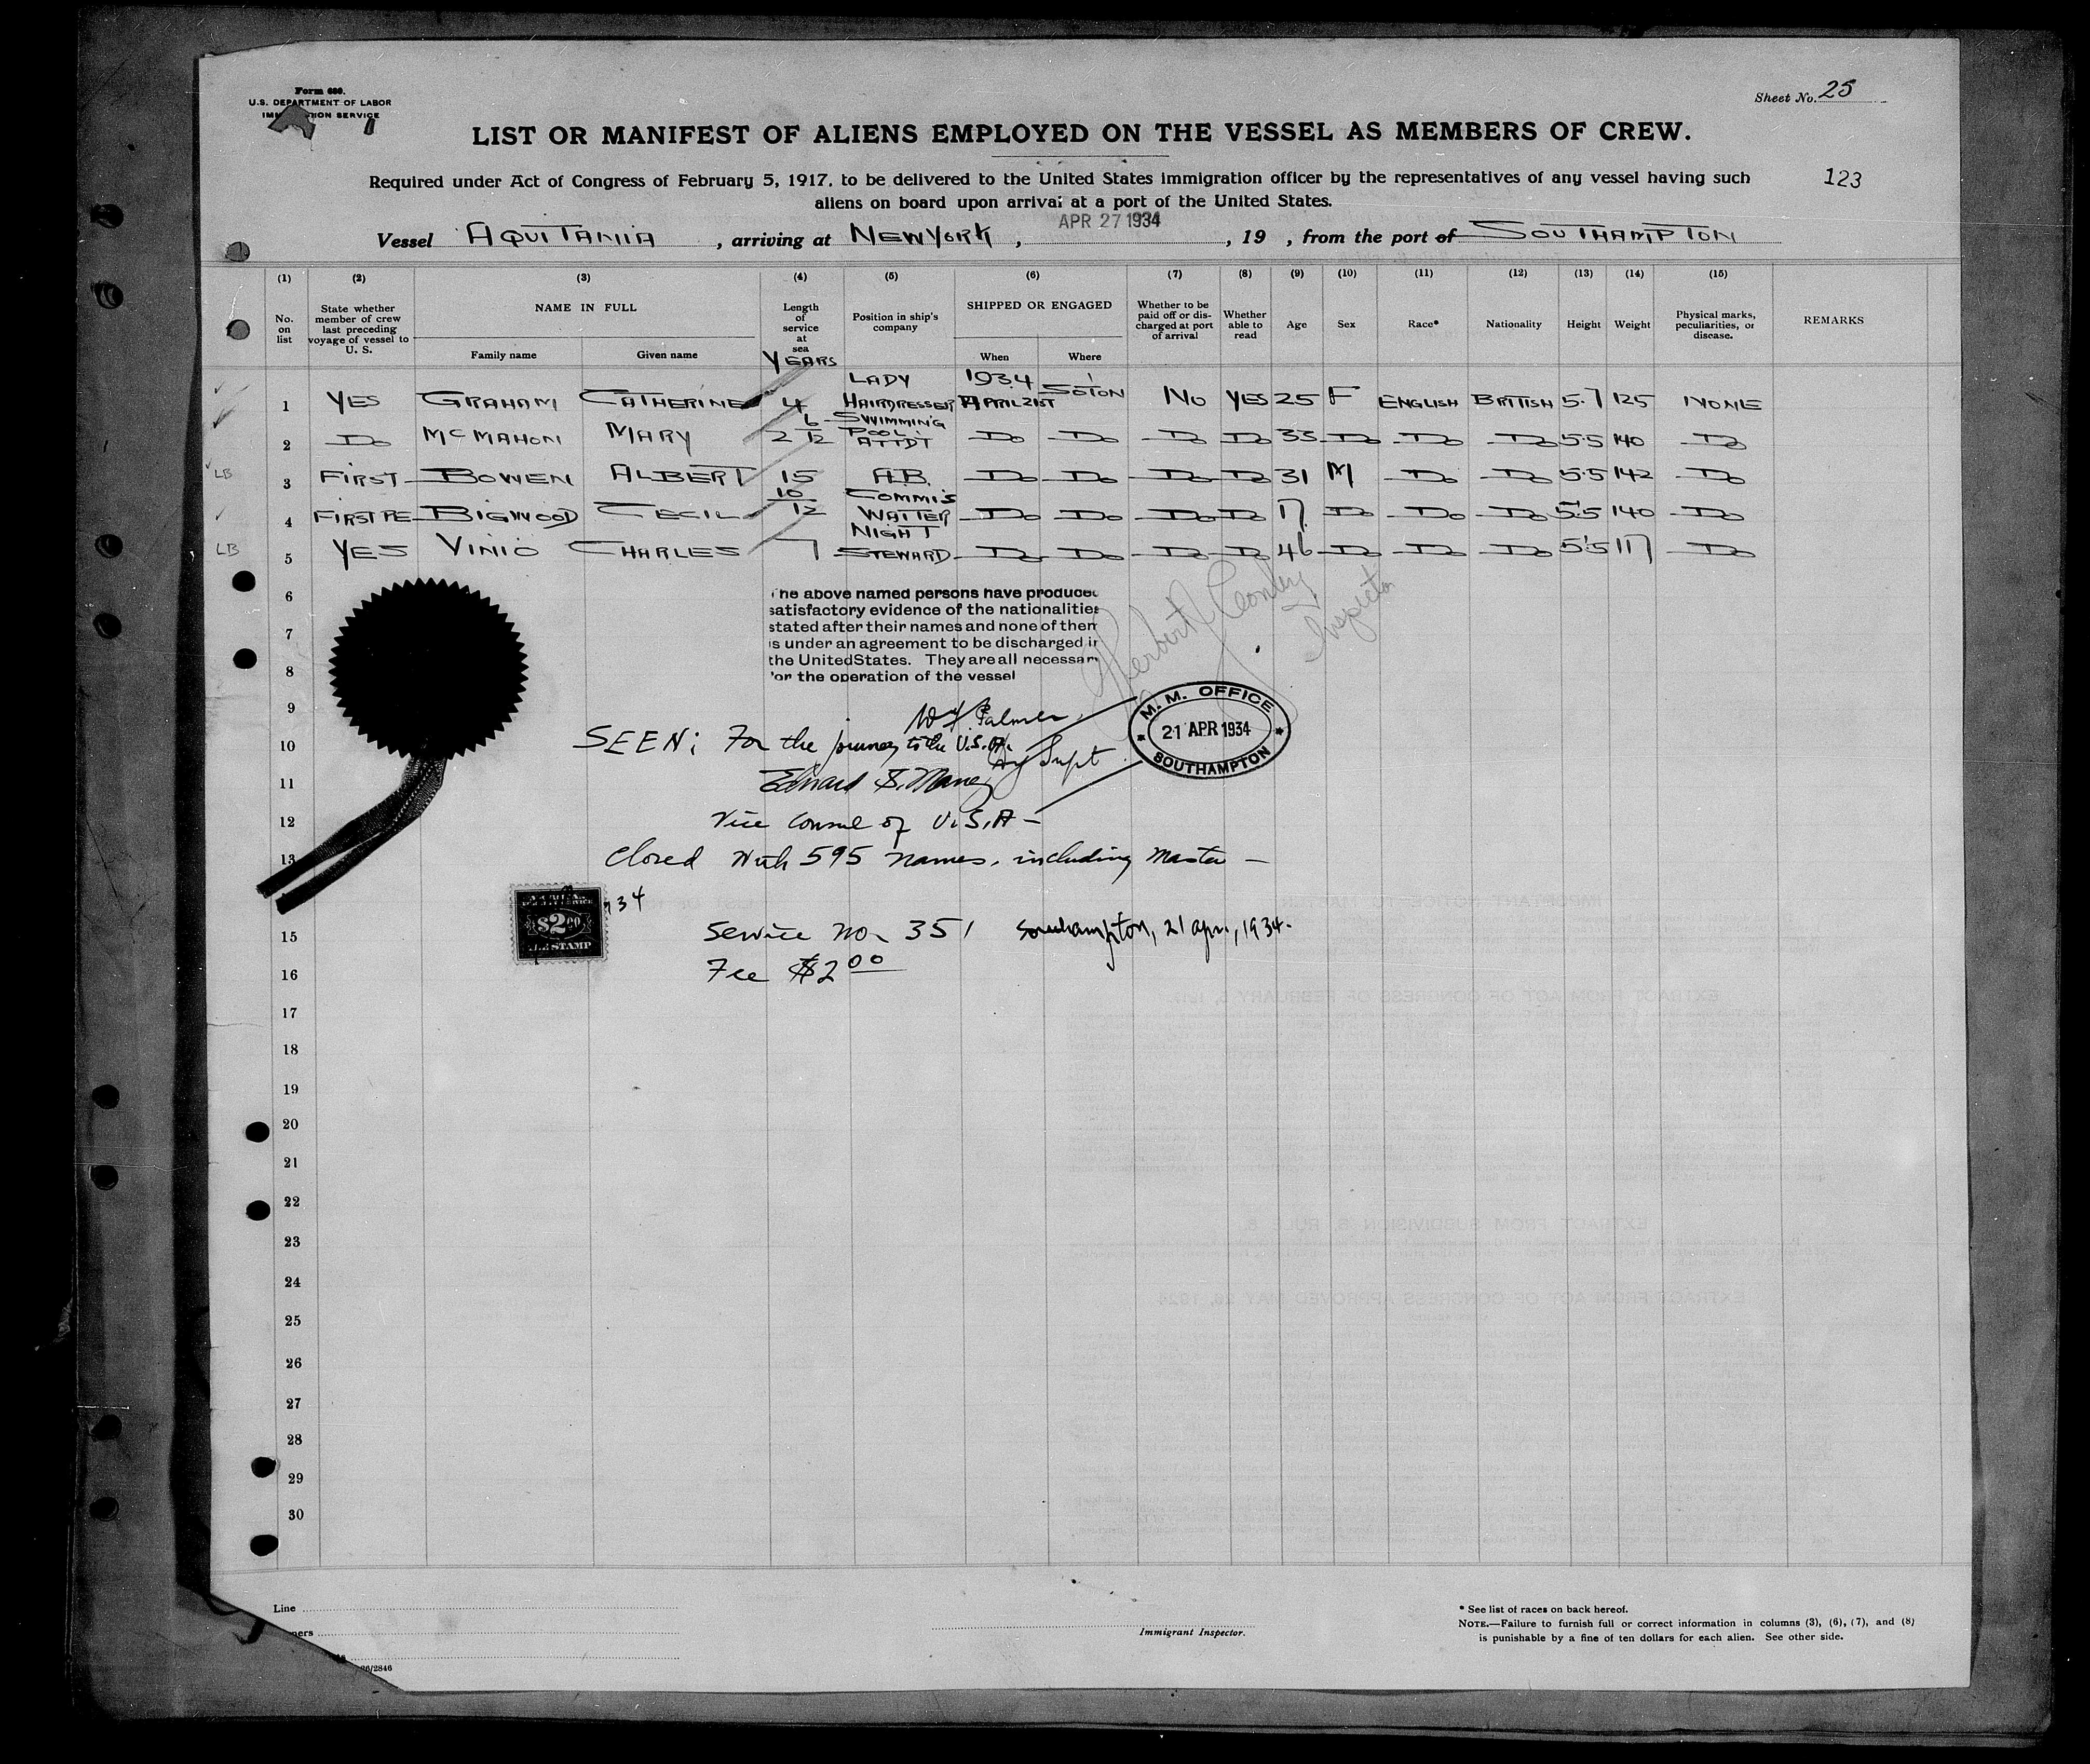 Form 680.
U.S. DEPARTMENT OF LABOR
SERVICE
Sheet No. 25
LIST OR MANIFEST OF ALIENS EMPLOYED ON THE VESSEL AS MEMBERS OF CREW.
Required under Act of Congress of February 5, 1917, to be delivered to the United States immigration officer by the representatives of any vessel having such
123
aliens on board upon arrival at a port of the United States.
APR 27 1934
Vessel AQUITANIA , arriving at NEW YORK , , 19 , from the port of SOUTHAMPTON
(1) (2) (3) (4) (5) (6) (7) (8) (9) (10) (11) (12) (13) (14) (15)
No. on list State whether member of crew last preceding voyage of vessel to U. S. NAME IN FULL Family name Given name Length of service at sea YEARS Position in ship's company SHIPPED OR ENGAGED When Where Whether to be paid off or discharged at port of arrival Whether able to read Age Sex Race* Nationality Height Weight Physical marks, peculiarities, or disease. REMARKS
1 YES GRAHAM CATHERINE 4 LADY HAIRDRESSER 1934 APRIL 21ST SOTON NO YES 25 F ENGLISH BRITISH 5.7 125 NONE
2 Do McMAHON MARY 2 6/12 SWIMMING POOL ATTDT Do Do Do Do 33 Do Do Do 5.5 140 Do
LB 3 FIRST BOWEN ALBERT 15 A.B. Do Do Do Do 31 M Do Do 5.5 142 Do
4 FIRST RE BIGWOOD CECIL 10/12 COMMIS WAITER Do Do Do Do 17 Do Do Do 5.5 140 Do
LB 5 YES VINIO CHARLES 7 NIGHT STEWARD Do Do Do Do 46 Do Do Do 5.5 117 Do
6
7
8
9
10
11
12
13
15
16
17
18
19
20
21
22
23
24
25
26
27
28
29
30
The above named persons have produced
satisfactory evidence of the nationalities
stated after their names and none of them
is under an agreement to be discharged in
the United States. They are all necessary
for the operation of the vessel
Inspector
Palmer
M. M. OFFICE
21 APR 1934
SOUTHAMPTON
SEEN: For the journey to the U.S.A.
Supt
Edward S. Maney
Vice Consul of U.S.A -
Closed with 595 names, including Master -
34
$2.00
STAMP
Service No. 351 Southampton, 21 Apr., 1934.
Fee $2 00
Line
Immigrant Inspector.
* See list of races on back hereof.
NOTE.—Failure to furnish full or correct information in columns (3), (6), (7), and (8)
is punishable by a fine of ten dollars for each alien. See other side.